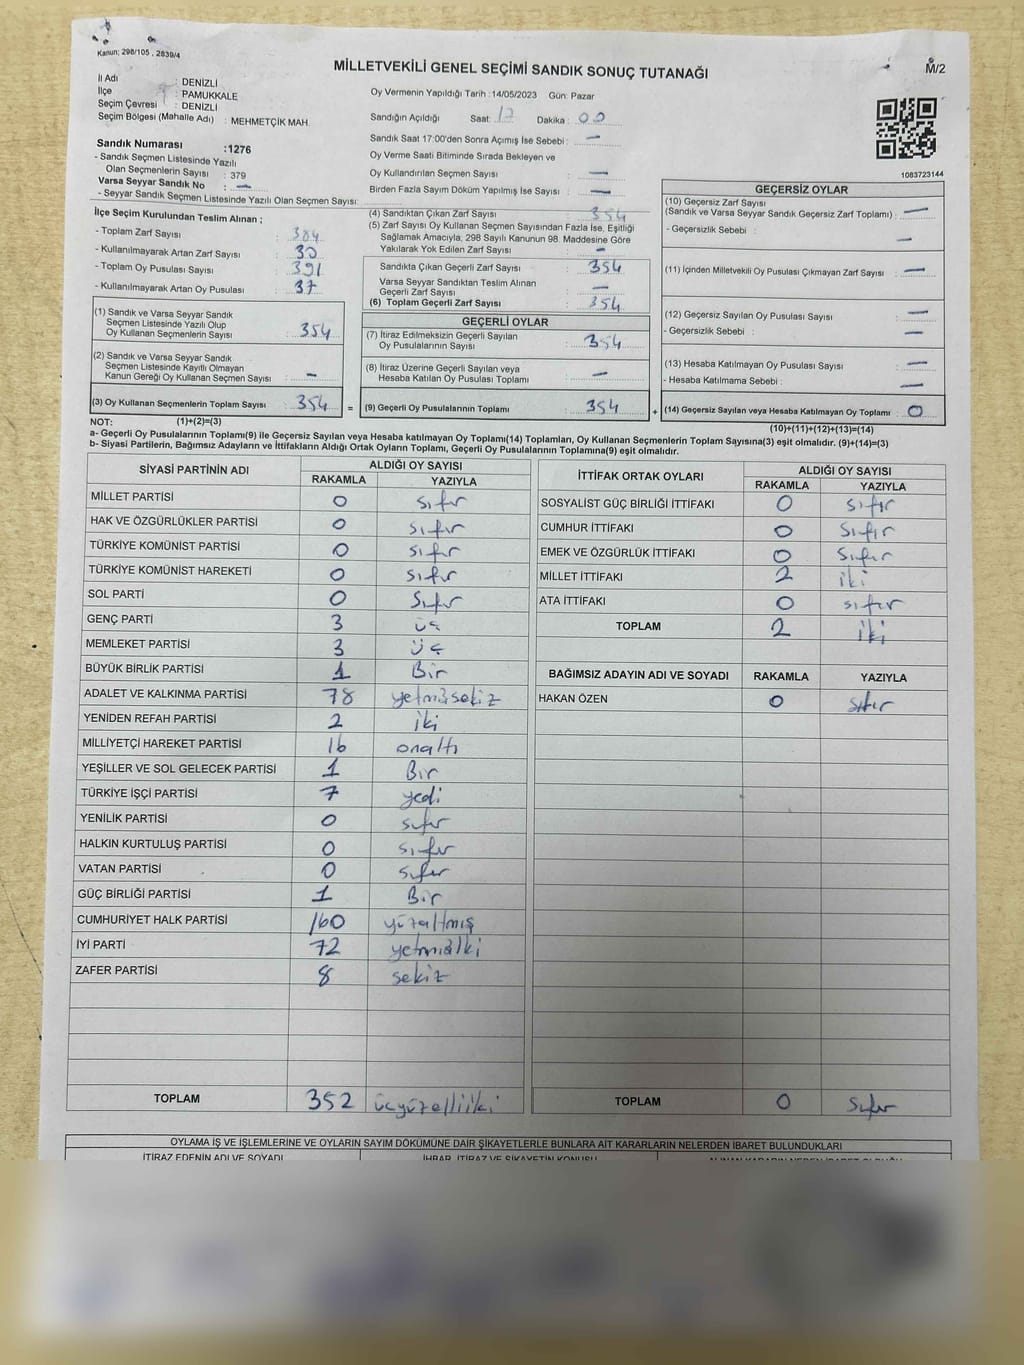 Kanun; 298/105 , 2839/4
MİLLETVEKİLİ GENEL SEÇİMİ SANDIK SONUÇ TUTANAĞI
M/2
İl Adı : DENİZLİ
İlçe : PAMUKKALE
Seçim Çevresi : DENİZLİ
Seçim Bölgesi (Mahalle Adı) : MEHMETÇİK MAH.
Oy Vermenin Yapıldığı Tarih :14/05/2023 Gün: Pazar
Sandığın Açıldığı Saat: 17 Dakika : 00
Sandık Saat 17:00'den Sonra Açımış İse Sebebi : —
Oy Verme Saati Bitiminde Sırada Bekleyen ve
Oy Kullandırılan Seçmen Sayısı —
Birden Fazla Sayım Döküm Yapılmış İse Sayısı : —
1083723144
Sandık Numarası :1276
- Sandık Seçmen Listesinde Yazılı
Olan Seçmenlerin Sayısı : 379
Varsa Seyyar Sandık No : —
- Seyyar Sandık Seçmen Listesinde Yazılı Olan Seçmen Sayısı:
İlçe Seçim Kurulundan Teslim Alınan ;
- Toplam Zarf Sayısı : 384
- Kullanılmayarak Artan Zarf Sayısı : 30
- Toplam Oy Pusulası Sayısı : 391
- Kullanılmayarak Artan Oy Pusulası : 37
(1) Sandık ve Varsa Seyyar Sandık
Seçmen Listesinde Yazılı Olup
Oy Kullanan Seçmenlerin Sayısı : 354
(2) Sandık ve Varsa Seyyar Sandık
Seçmen Listesinde Kayıtlı Olmayan
Kanun Gereği Oy Kullanan Seçmen Sayısı : —
(3) Oy Kullanan Seçmenlerin Toplam Sayısı : 354 =
(1)+(2)=(3)
(4) Sandıktan Çıkan Zarf Sayısı : 354
(5) Zarf Sayısı Oy Kullanan Seçmen Sayısından Fazla İse, Eşitliği
Sağlamak Amacıyla, 298 Sayılı Kanunun 98. Maddesine Göre
Yakılarak Yok Edilen Zarf Sayısı : —
Sandıkta Çıkan Geçerli Zarf Sayısı : 354
Varsa Seyyar Sandıktan Teslim Alınan
Geçerli Zarf Sayısı : —
(6) Toplam Geçerli Zarf Sayısı : 354
GEÇERLİ OYLAR
(7) İtiraz Edilmeksizin Geçerli Sayılan
Oy Pusulalarının Sayısı : 354
(8) İtiraz Üzerine Geçerli Sayılan veya
Hesaba Katılan Oy Pusulası Toplamı : —
(9) Geçerli Oy Pusulalarının Toplamı : 354 +
GEÇERSİZ OYLAR
(10) Geçersiz Zarf Sayısı
(Sandık ve Varsa Seyyar Sandık Geçersiz Zarf Toplamı) : —
- Geçersizlik Sebebi : —
(11) İçinden Milletvekili Oy Pusulası Çıkmayan Zarf Sayısı : —
(12) Geçersiz Sayılan Oy Pusulası Sayısı : —
- Geçersizlik Sebebi : —
(13) Hesaba Katılmayan Oy Pusulası Sayısı : —
- Hesaba Katılmama Sebebi : —
(14) Geçersiz Sayılan veya Hesaba Katılmayan Oy Toplamı : 0
(10)+(11)+(12)+(13)=(14)
NOT:
a- Geçerli Oy Pusulalarının Toplamı(9) ile Geçersiz Sayılan veya Hesaba katılmayan Oy Toplamı(14) Toplamları, Oy Kullanan Seçmenlerin Toplam Sayısına(3) eşit olmalıdır. (9)+(14)=(3)
b- Siyasi Partilerin, Bağımsız Adayların ve İttifakların Aldığı Ortak Oyların Toplamı, Geçerli Oy Pusulalarının Toplamına(9) eşit olmalıdır.
SİYASİ PARTİNİN ADI ALDIĞI OY SAYISI
RAKAMLA YAZIYLA
MİLLET PARTİSİ 0 sıfır
HAK VE ÖZGÜRLÜKLER PARTİSİ 0 sıfır
TÜRKİYE KOMÜNİST PARTİSİ 0 sıfır
TÜRKİYE KOMÜNİST HAREKETİ 0 sıfır
SOL PARTİ 0 sıfır
GENÇ PARTİ 3 üç
MEMLEKET PARTİSİ 3 üç
BÜYÜK BİRLİK PARTİSİ 1 Bir
ADALET VE KALKINMA PARTİSİ 78 yetmişsekiz
YENİDEN REFAH PARTİSİ 2 iki
MİLLİYETÇİ HAREKET PARTİSİ 16 onaltı
YEŞİLLER VE SOL GELECEK PARTİSİ 1 Bir
TÜRKİYE İŞÇİ PARTİSİ 7 yedi
YENİLİK PARTİSİ 0 sıfır
HALKIN KURTULUŞ PARTİSİ 0 sıfır
VATAN PARTİSİ 0 sıfır
GÜÇ BİRLİĞİ PARTİSİ 1 Bir
CUMHURİYET HALK PARTİSİ 160 yüzaltmış
İYİ PARTİ 72 yetmişiki
ZAFER PARTİSİ 8 sekiz
TOPLAM 352 üçyüzelliiki
İTTİFAK ORTAK OYLARI ALDIĞI OY SAYISI
RAKAMLA YAZIYLA
SOSYALİST GÜÇ BİRLİĞİ İTTİFAKI 0 sıfır
CUMHUR İTTİFAKI 0 sıfır
EMEK VE ÖZGÜRLÜK İTTİFAKI 0 sıfır
MİLLET İTTİFAKI 2 iki
ATA İTTİFAKI 0 sıfır
TOPLAM 2 iki
BAĞIMSIZ ADAYIN ADI VE SOYADI RAKAMLA YAZIYLA
HAKAN ÖZEN 0 sıfır
TOPLAM 0 sıfır
OYLAMA İŞ VE İŞLEMLERİNE VE OYLARIN SAYIM DÖKÜMÜNE DAİR ŞİKAYETLERLE BUNLARA AİT KARARLARIN NELERDEN İBARET BULUNDUKLARI
İTİRAZ EDENİN ADI VE SOYADI İHBAR, İTİRAZ VE ŞİKAYETİN KONUSU